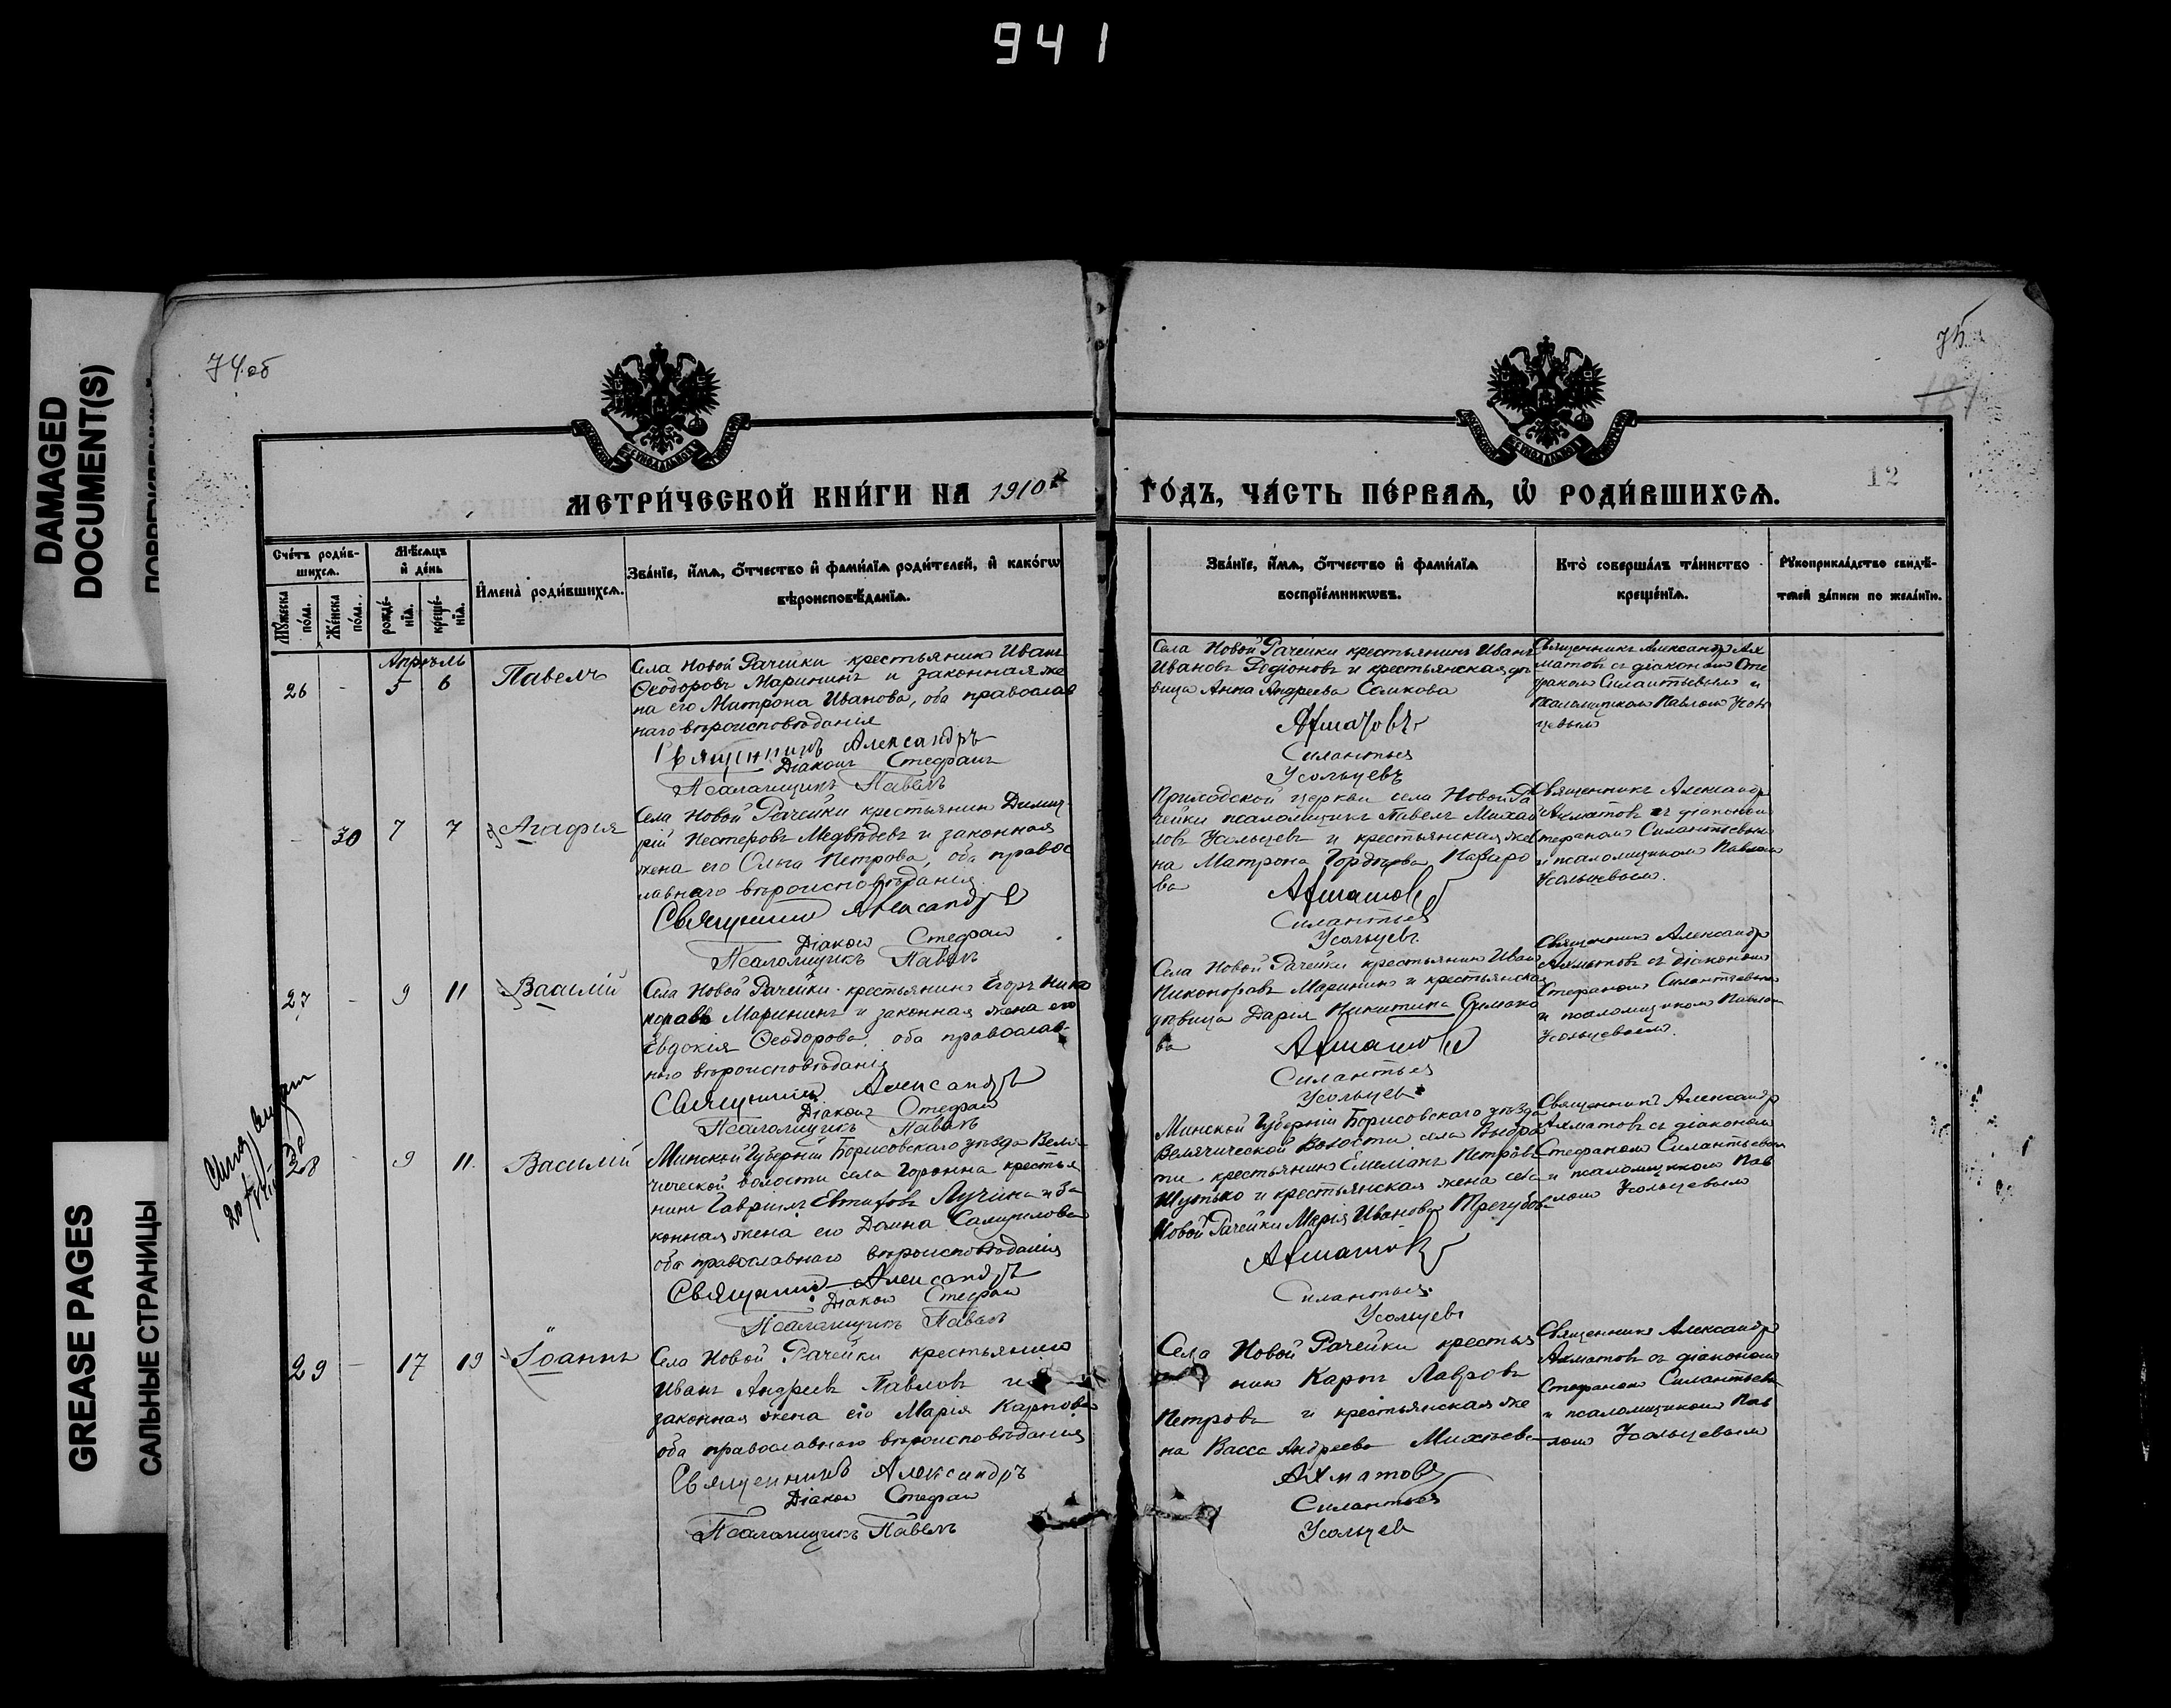 941
DAMAGED
DOCUMENT(S)
GREASE PAGES
САЛЬНЫЕ СТРАНИЦЫ
74 об
75
12
МЕТРИ́ЧЕСКОЙ КНИ́ГИ НА 1910 г
ГО́ДЪ, ЧА́СТЬ ПЕ́РВАѦ, Ѽ РОДИ́ВШИХСѦ.
Сче́тъ роди́в-
шихсѧ.
Мꙋ́жеска по́ла.
Же́нска по́ла.
Мѣ́сѧцъ
и҆ де́нь
рожде́-
нїѧ.
креще́-
нїѧ.
И҆мена̀ роди́вшихсѧ.
Зва́нїе, и҆́мѧ, ѻ҆́тчество и҆ фами́лїѧ роди́телей, и҆ како́гѡ
вѣроисповѣ́данїѧ.
Зва́нїе, и҆́мѧ, ѻ҆́тчество и҆ фами́лїѧ
воспрїе́мникѡвъ.
Кто̀ соверша́лъ та́инство
креще́нїѧ.
Рꙋкоприкла́дство свидѣ́-
телей за́писи по жела́нїю.
Апрѣль
26 - 5 6 Павелъ
Села Новой Рачейки крестьянинъ Иванъ
Ѳеодоровъ Марининъ и законная же
на его Матрона Иванова, оба православ
наго вѣроисповѣданія
Священникъ Александръ
Діаконъ Стефанъ
Псаломщикъ Павелъ
Села Новой Рачейки крестьянинъ Иванъ
Ивановъ Родіоновъ и крестьянская дѣ
вица Анна Андреева Сомкова
Ахматовъ
Силантьев
Усольцевъ
Священникъ Александръ Ах
матовъ съ діакономъ Сте
фаномъ Силантьевымъ и
псаломщикомъ Павломъ Усоль
цевымъ
- 30 7 7 Агафія
Села Новой Рачейки крестьянинъ Димит
рій Нестеровъ Медвѣдевъ и законная
жена его Ольга Петрова, оба правос
лавнаго вѣроисповѣданія.
Священникъ Александръ
Діаконъ Стефанъ
Псаломщикъ Павелъ
Приходской церкви села Новой Ра
чейки псаломщикъ Павелъ Михай
ловъ Усольцевъ и крестьянская же
на Матрона Гордѣева
ва
Ахматовъ
Силантьев
Усольцевъ
Священникъ Александръ
Ахматовъ съ діакономъ
Стефаномъ Силантьевымъ
и псаломщикомъ Павломъ
Усольцевымъ.
27 - 9 11 Василій
Села Новой Рачейки крестьянинъ Егоръ Нико
норовъ Марининъ и законная жена его
Евдокія Ѳеодорова оба православ-
наго вѣроисповѣданія
Священникъ Александръ
Діаконъ Стефанъ
Псаломщикъ Павелъ
Села Новой Рачейки крестьянинъ Иванъ
Никоноровъ Марининъ и крестьянская
дѣвица Дарія Никитина
ва
Ахматовъ
Силантьев
Усольцевъ
Священникъ Александръ
Ахматовъ съ діакономъ
Стефаномъ Силантьевымъ
и псаломщикомъ Павломъ
Усольцевымъ.
28 - 9 11. Василій
Минской Губерніи Борисовскаго уѣзда Веля-
чической волости села крестья
нинъ Гавріилъ Лучина и за
конная жена его Домна Самуилова
оба православнаго вѣроисповѣданія
Священникъ Александръ
Діаконъ Стефанъ
Псаломщикъ Павелъ
Минской Губерніи Борисовскаго уѣзда
Велячической Волости села
ти крестьянинъ Емеліанъ Петровъ
Шутько и крестьянская жена села
Новой Рачейки Марія Иванова Трегубова
Ахматовъ
Силантьев
Усольцевъ
Священникъ Александръ
Ахматовъ съ діакономъ
Стефаномъ Силантьевымъ
и псаломщикомъ Пав
ломъ Усольцевымъ
29 - 17 19 Іоаннъ
Села Новой Рачейки крестьянинъ
Иванъ Андреевъ Павловъ и
законная жена его Марія Карпова
оба православнаго вѣроисповѣданія
Священникъ Александръ
Діаконъ Стефанъ
Псаломщикъ Павелъ
Села Новой Рачейки крестья
нинъ Карпъ Лавровъ
Петровъ и крестьянская же
на Васса Андреева
Ахматовъ
Силантьев
Усольцев
Священникъ Александръ
Ахматовъ съ діакономъ
Стефаномъ Силантьевымъ
и псаломщикомъ Пав
ломъ Усольцевымъ